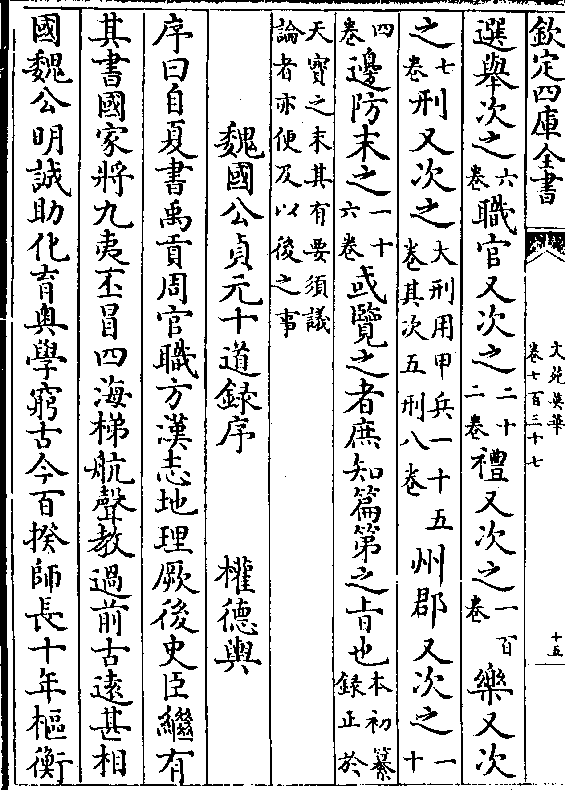 欽定四庫全書
文苑英華
卷七百三十七
十五
選舉次之六卷職官又次之二十二卷禮又次之一百卷樂又次
之七卷刑又次之大刑用甲兵一十五卷其次五刑八卷州郡又次之一十
四卷邊防末之一十六卷或覽之者庶知篇第之旨也本初纂錄止於
天寶之末其有要須議論者亦便及以後之事
魏國公貞元十道錄序 權德輿
序曰自夏書禹貢周官職方漢志地理厥後史臣繼有
其書國家將九夷丕冒四海梯航聲教過前古遠甚相
國魏公明誠助化育奧學窮古今百揆師長十年樞衡